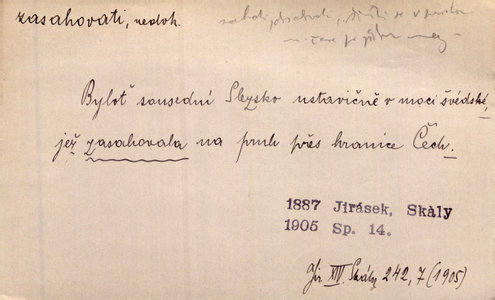 zasahovati, nedok.
sahati, se v
Byloť sousední Slezsko ustavičně v moci švédské,
jež zasahovala na pruh přes hranice Čech.
1887 Jirásek, Skály
1905 Sp. 14.
Jir XIV. Skály 242, 7 (1905)